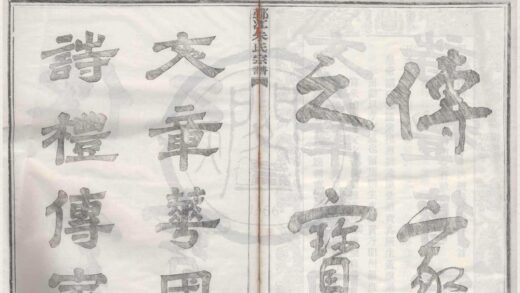 傳家
之寶
江朱氏宗譜
文章華國
詩禮傳家